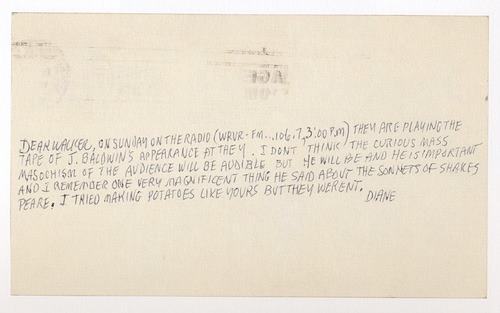 DEAR WALKER, ON SUNDAY ON THE RADIO (WRVR-FM...106.7, 3:00 P.M) THEY ARE PLAYING THE
TAPE OF J. BALDWIN'S APPEARANCE AT THE Y. I DONT THINK THE CURIOUS MASS
MASOCHISM OF THE AUDIENCE WILL BE AUDIBLE BUT HE WILL BE AND HE IS IMPORTANT
AND I REMEMBER ONE VERY MAGNIFICENT THING HE SAID ABOUT THE SONNETS OF SHAKES
PEARE. I TRIED MAKING POTATOES LIKE YOURS BUT THEY WERENT.
DIANE